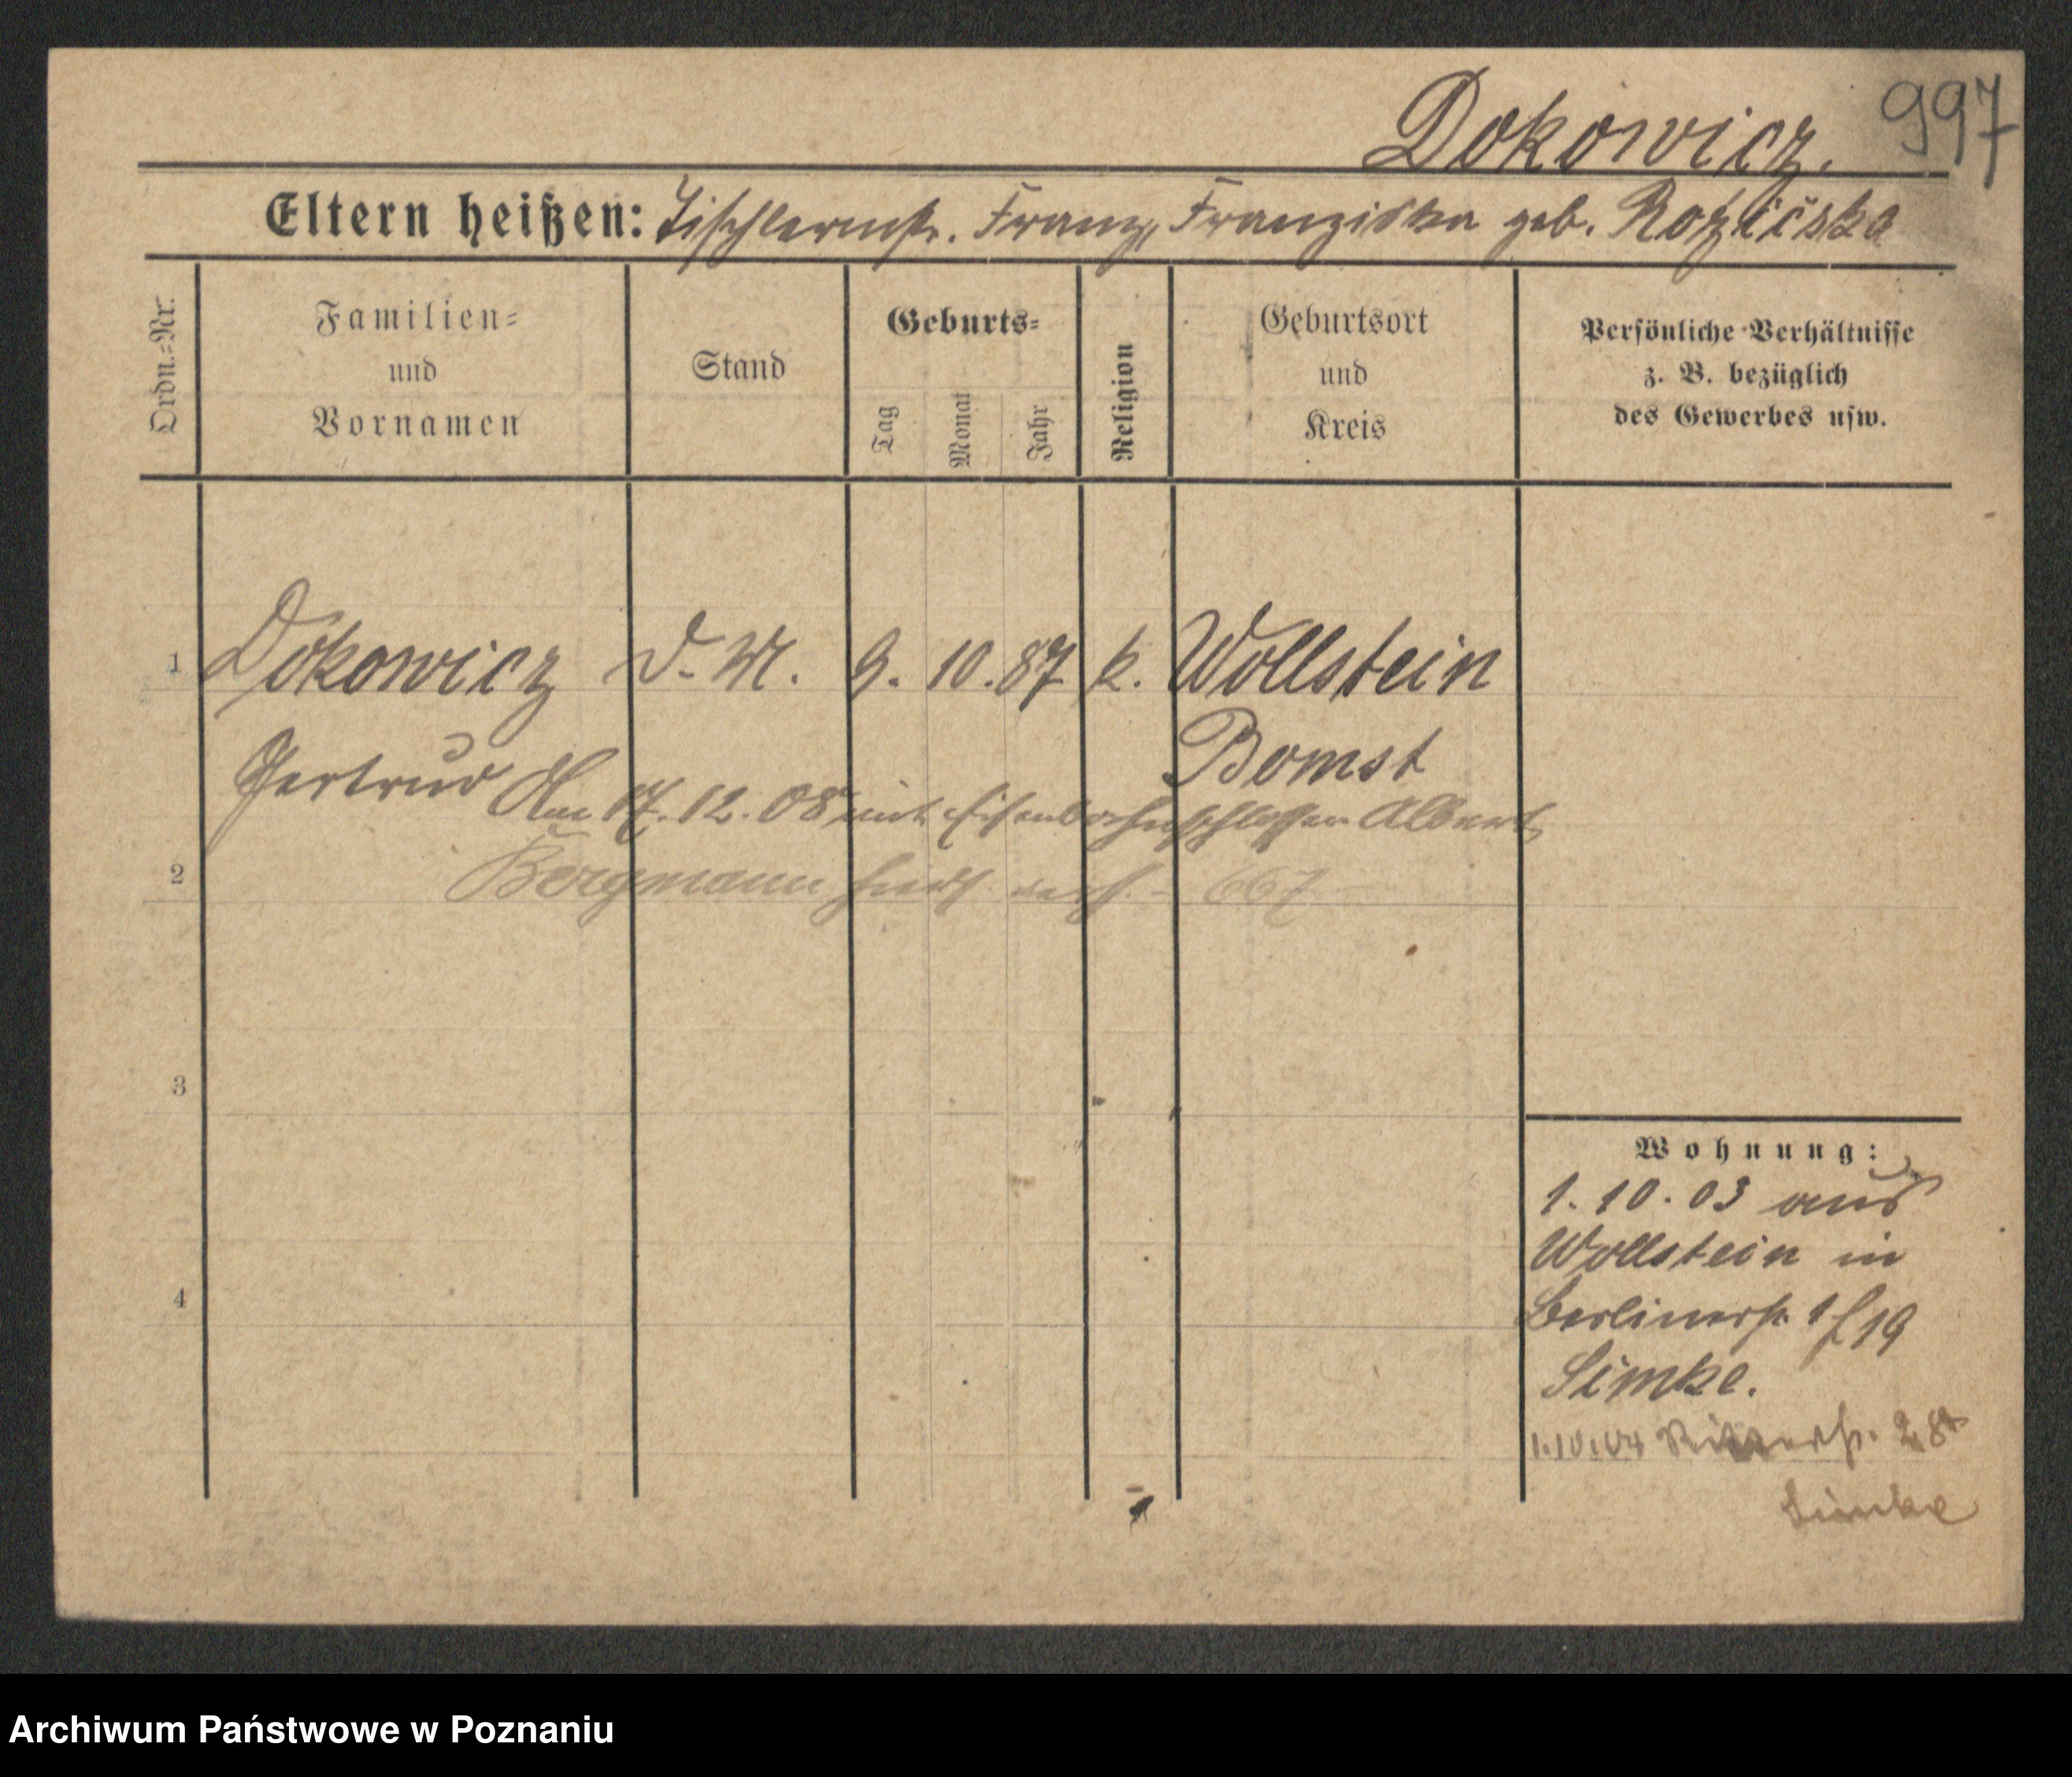 Dokowicz. 997
Eltern heißen: Tischlermstr. Franz, Franziska geb.
Ordn.=Nr.
Familien=
und
Vornamen
Stand
Geburts=
Tag
Monat
Jahr
Religion
Geburtsort
und
Kreis
Persönliche Verhältnisse
z. B. bezüglich
des Gewerbes usw.
1 Dokowicz D. M. 9. 10. 87 k. Wollstein
Bomst
Gertrud Am 17. 12. 08 mit Eisenbahnschlosser Albert
2 Bergmann hier verh. - 667
3
4
Wohnung:
1. 10. 03 aus
Wollstein in
Berlinerstr.
Simke.
1.10.04
Simke
Archiwum Państwowe w Poznaniu